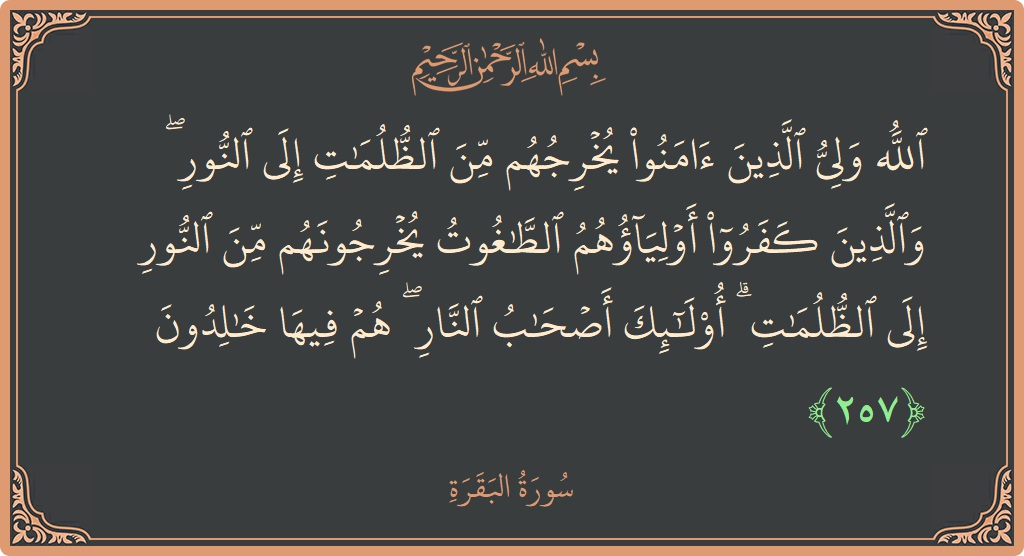 بِسْمِ اللهِ الرَّحْمٰنِ الرَّحِيْمِ
ٱللَّهُ وَلِىُّ ٱلَّذِينَ ءَامَنُوا۟ يُخْرِجُهُم مِّنَ ٱلظُّلُمَـٰتِ إِلَى ٱلنُّورِ ۖ
وَٱلَّذِينَ كَفَرُوٓا۟ أَوْلِيَآؤُهُمُ ٱلطَّـٰغُوتُ يُخْرِجُونَهُم مِّنَ ٱلنُّورِ
إِلَى ٱلظُّلُمَـٰتِ ۗ أُو۟لَـٰٓئِكَ أَصْحَـٰبُ ٱلنَّارِ ۖ هُمْ فِيهَا خَـٰلِدُونَ
﴿٢٥٧﴾
سُورَةُ البَقَرَةِ